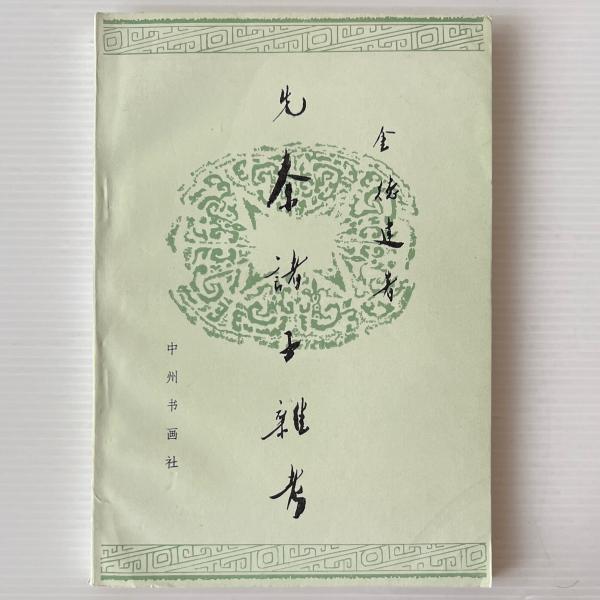 金德建著
先秦諸子雜考
中州书画社